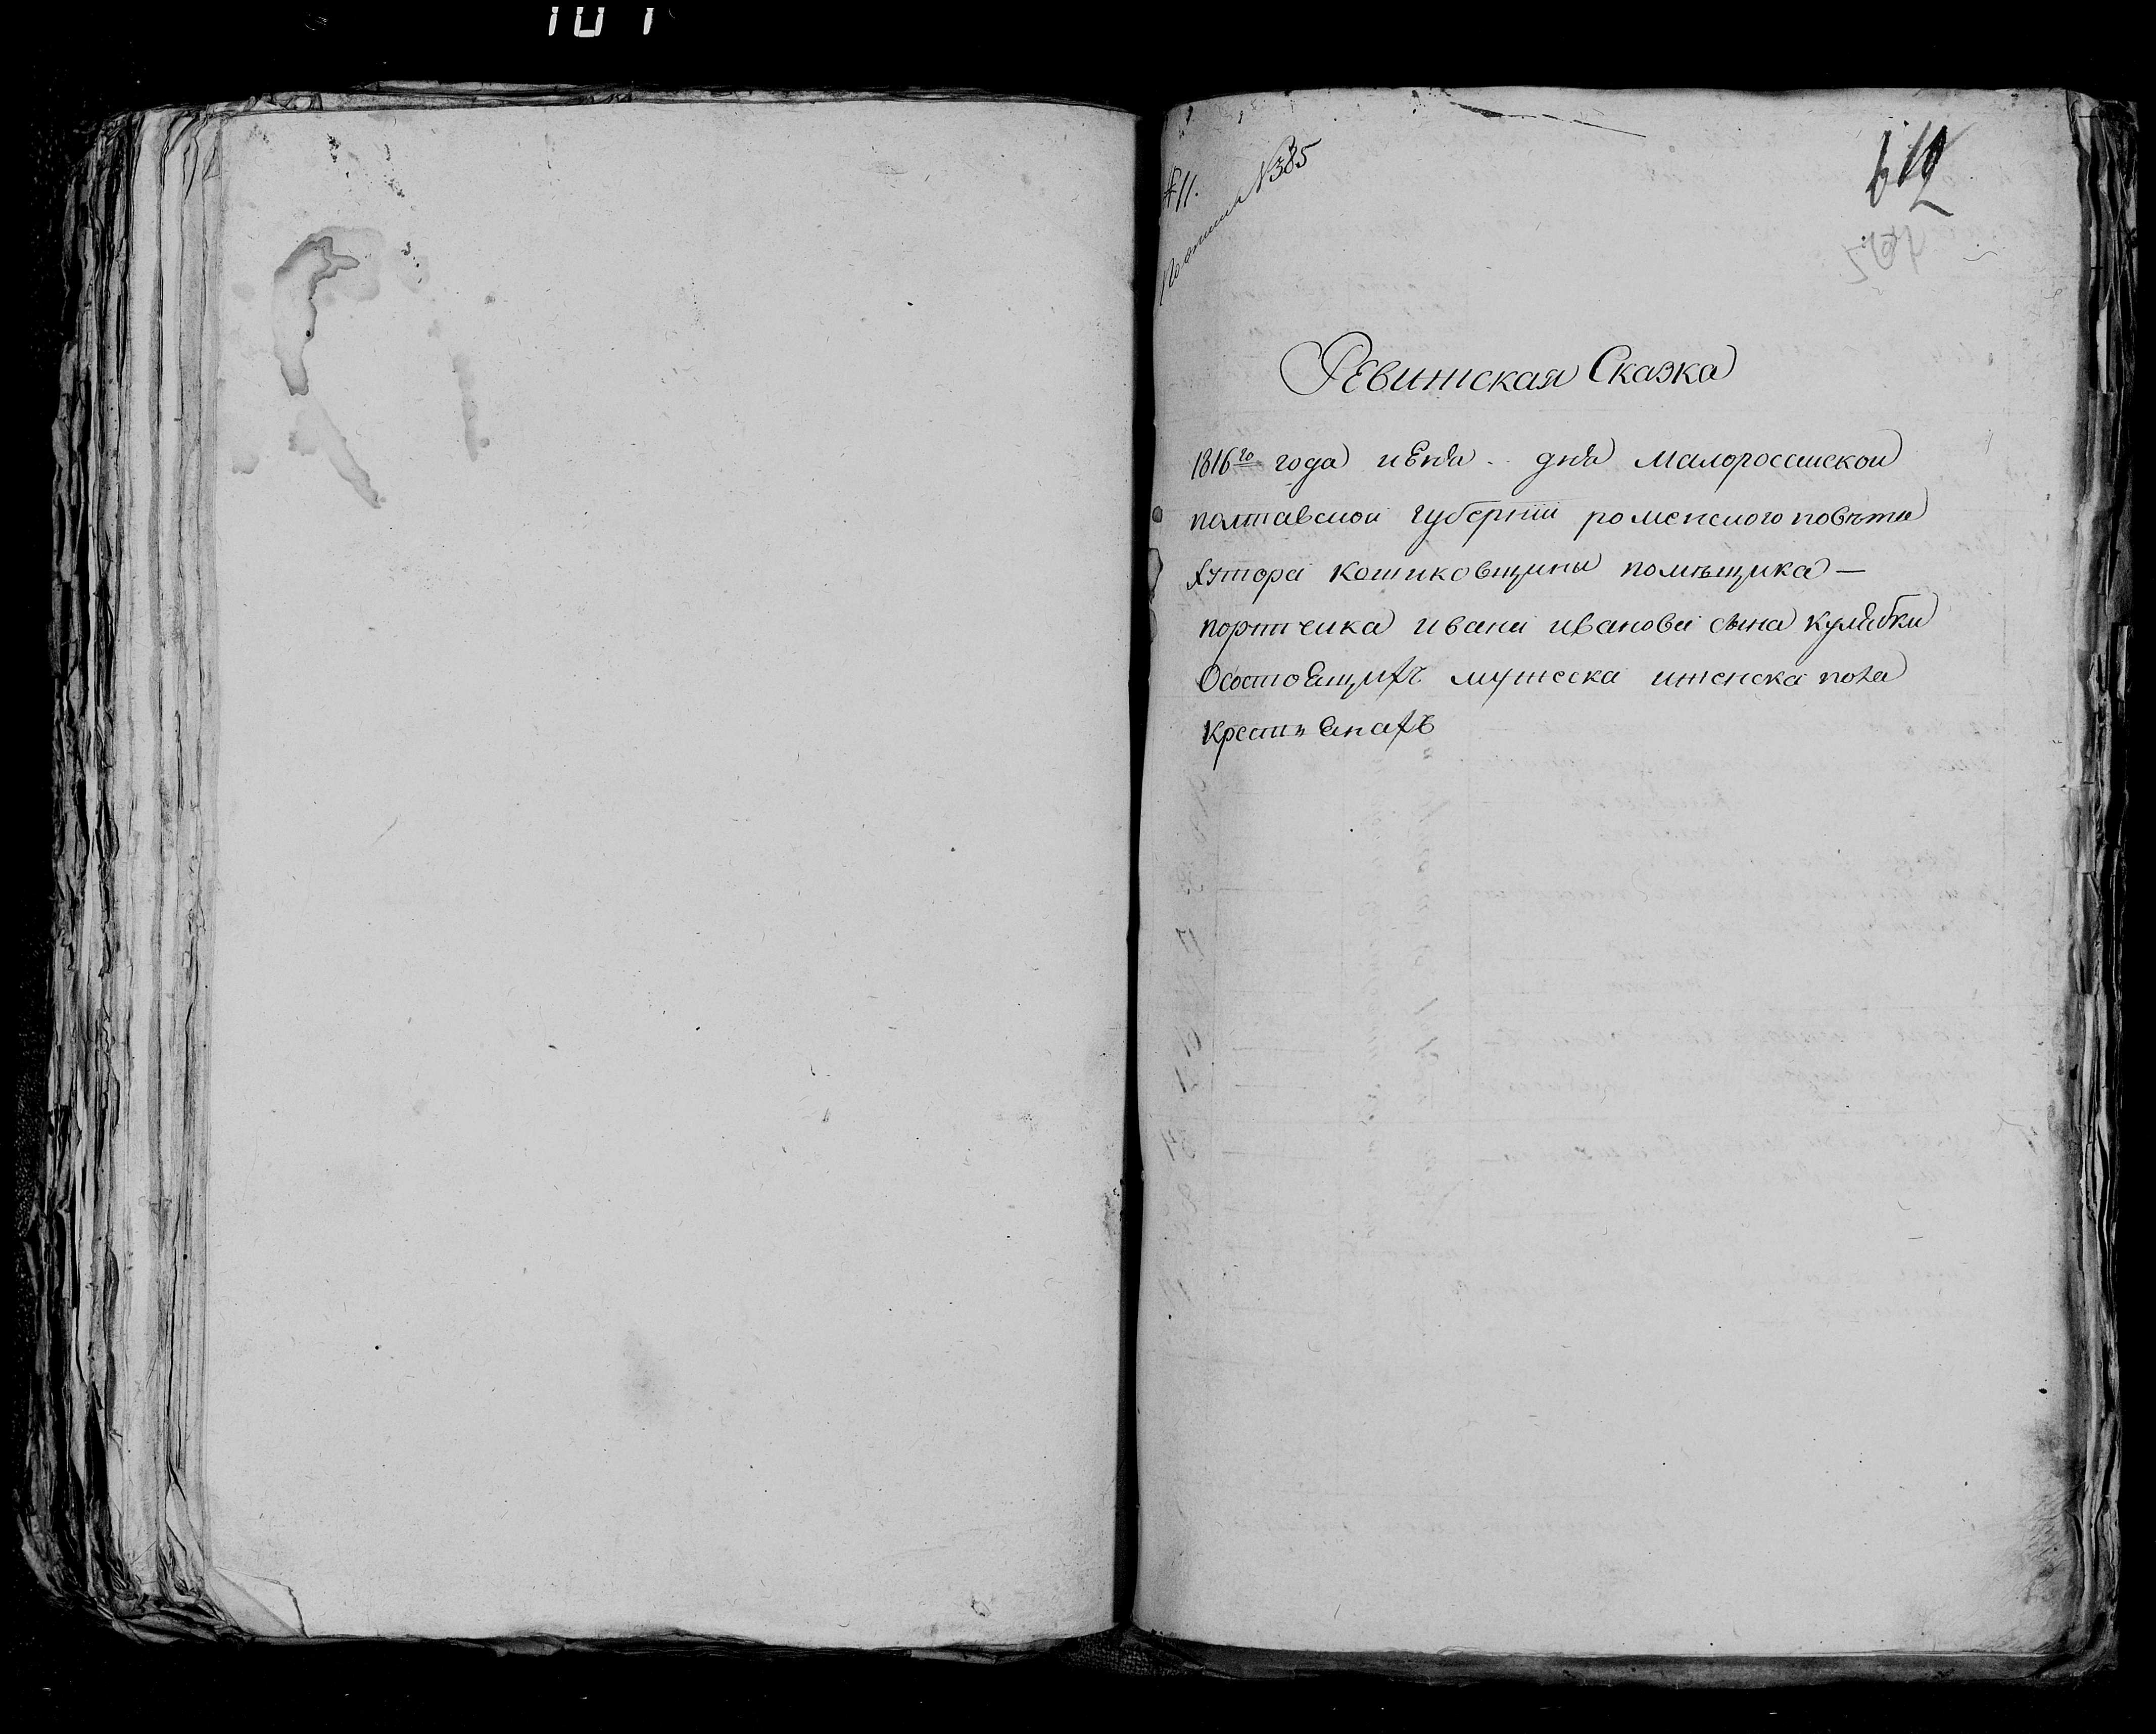 № 11.
По описи № 385
612
Ревижская Сказка
1816го года иЕня .. дня малороссиской
полтавской губернии роменского повѣта
хутора кошиковщины помѣщика —
портчика ивана иванова сына кулябки
ОсостоЕщихъ мужеска иженска пола
крестьЕнахъ